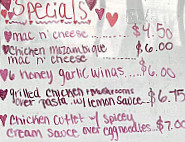 Specials
mac n' cheese ........ $4.50
Chicken Mozambique $6.00
mac n' cheese
6 honey garlic wings ..... $6.00
grilled chicken + mushrooms
over pasta w/ lemon sauce.. $6.75
Chicken cutlet w/ spicey
cream sauce over egg noodles... $7.00